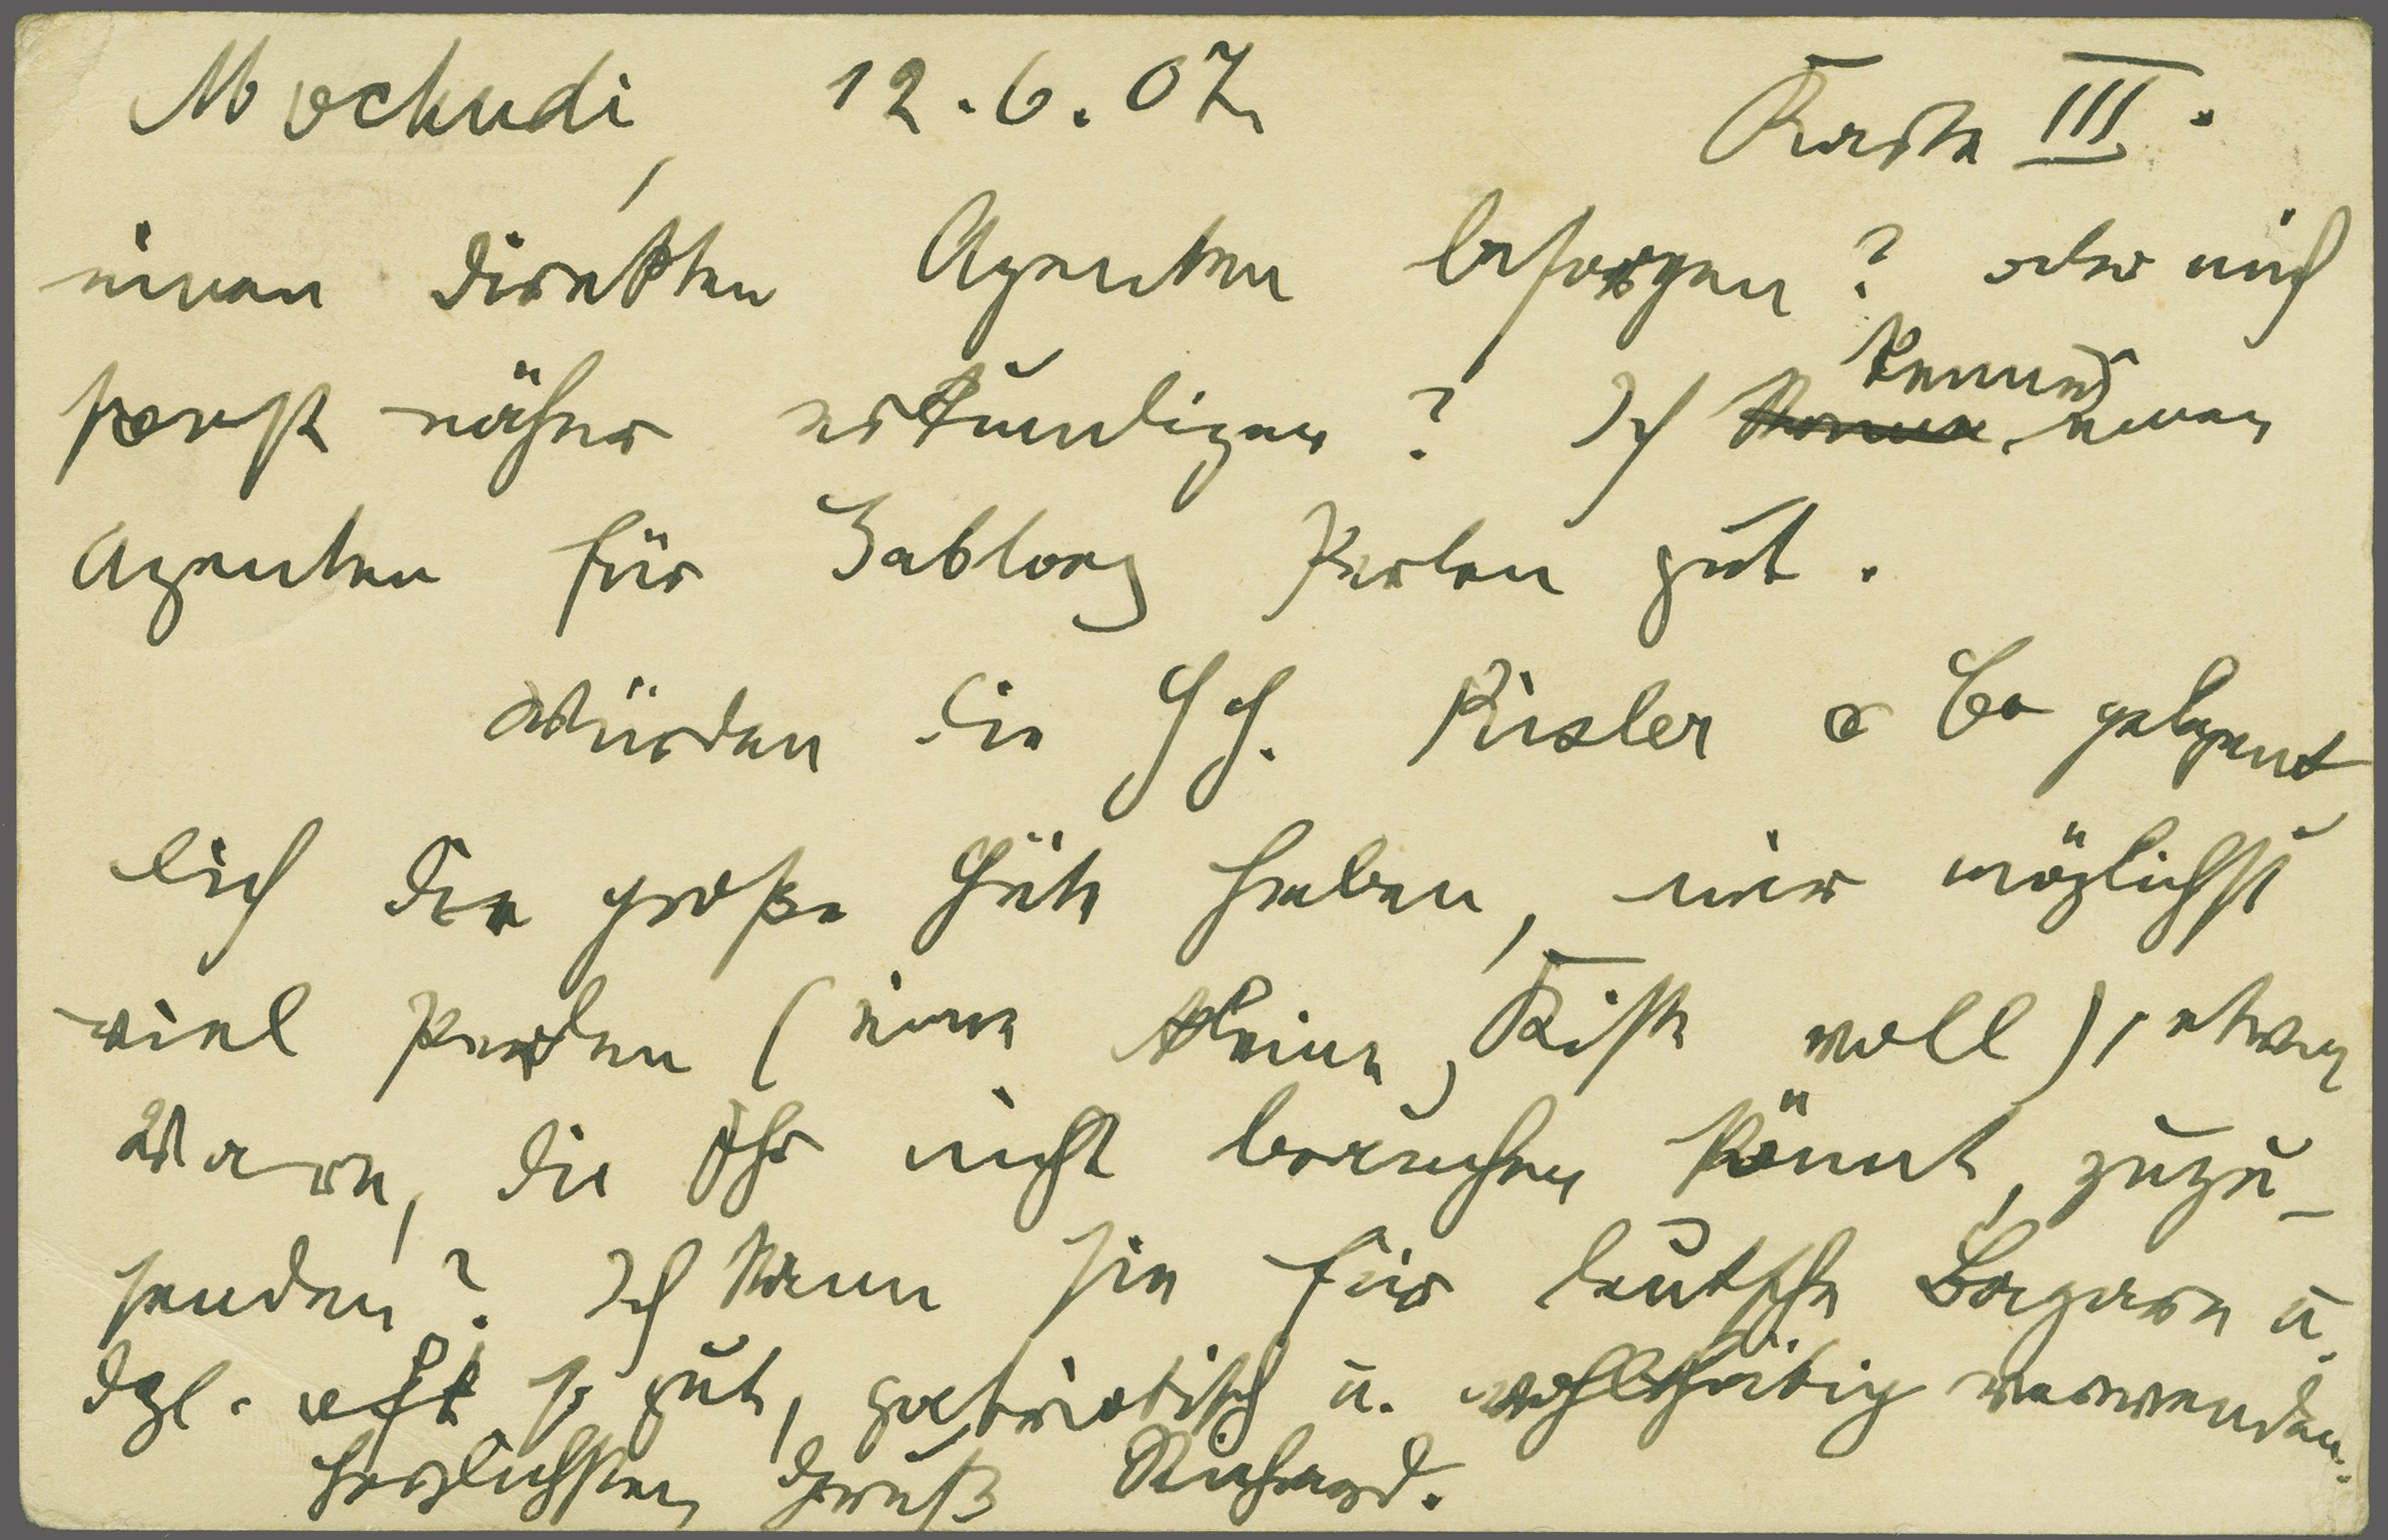 Mochudi, 12.6.07. Karte III.
einen direkten Agenten besorgen? oder mich
sonst näher erkundigen? Ich kenne einen
Agenten für Gablonz Perlen gut.
Würden die HH. Risler & Co gelegent
lich die große Güte haben, mir möglichst
viel Perlen (eine kleine Kiste voll), etwa
Ware, die Ihr nicht brauchen könnt, zuzu-
senden? Ich kann sie für deutsche Bazare u.
dgl. oft so gut, patriotisch u. wohlthätig verwenden.
herzlichsten Gruß Richard.